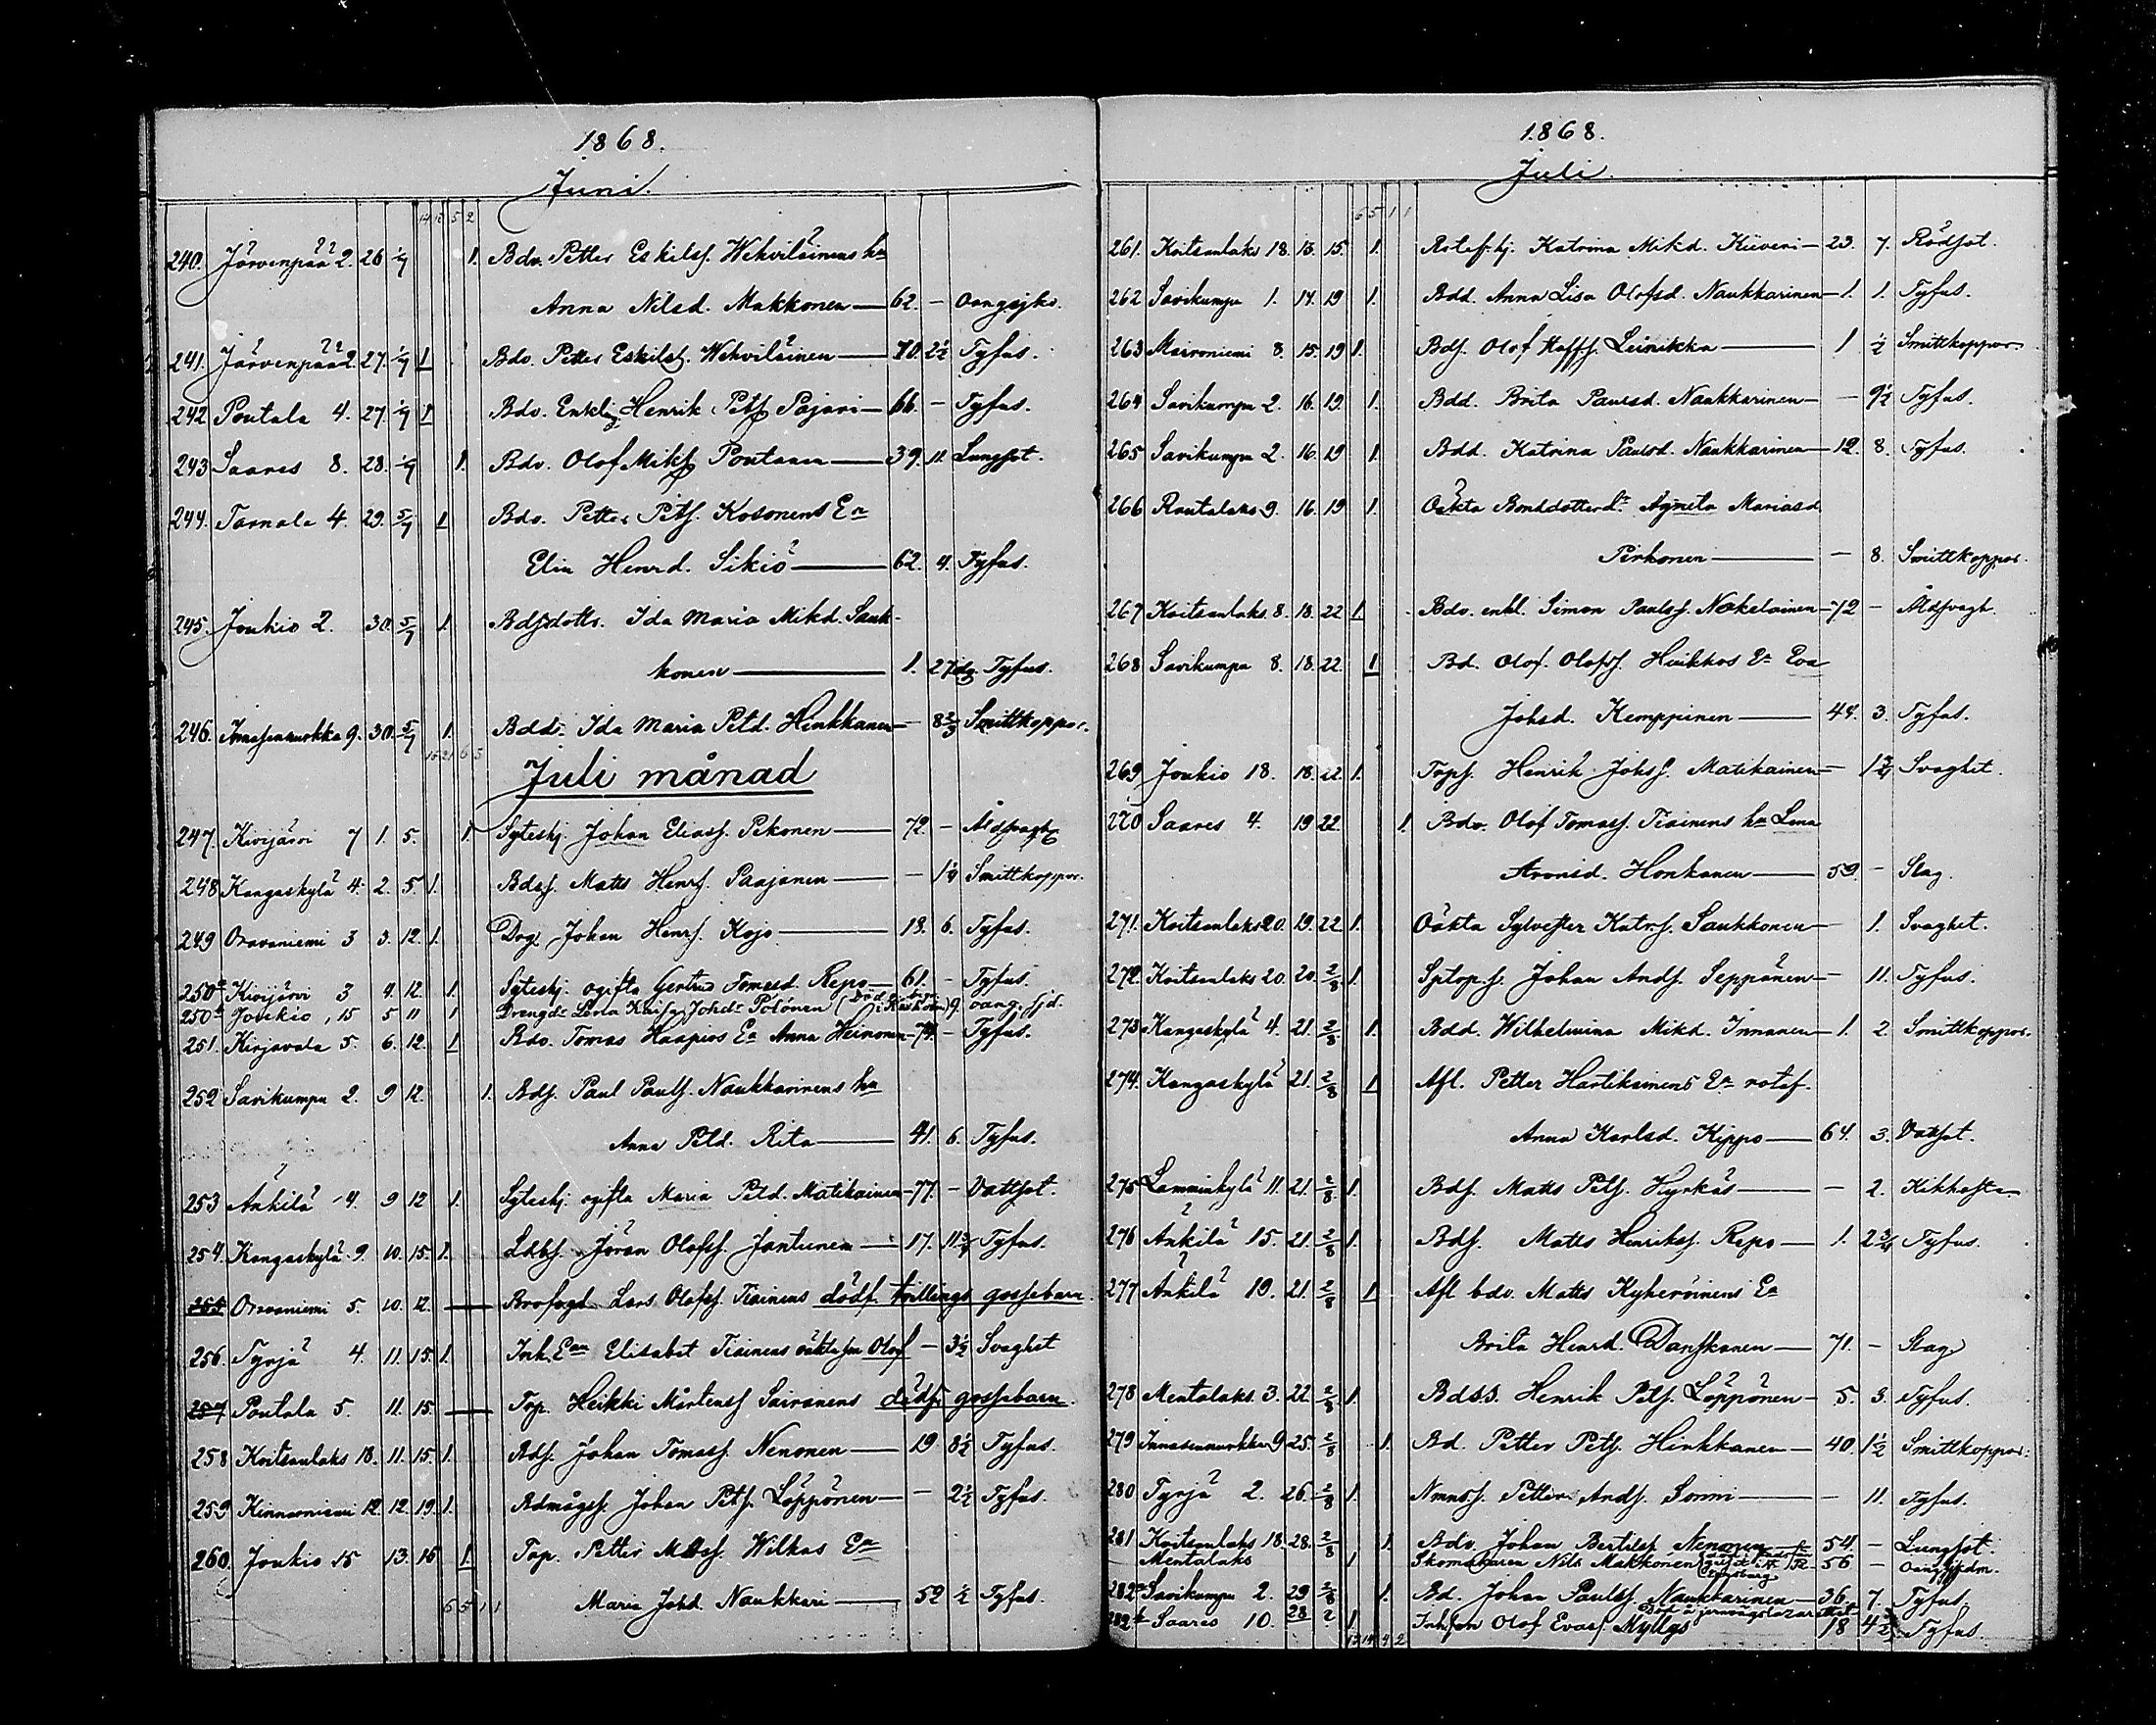 1868.
Juni.
14 12 5 2
240. Järvenpää 2. 26 1/7 1. Bdv. Petter Eskilss. Wehviläinens hu
Anna Nilsd. Makkonen — 62. —
241. Järvenpää 2. 27. 1/7 1 Bdv. Petter Eskilss. Wehviläinen — 70. 2 1/2 Tyfus.
242 Poutala 4. 27. 1/7 1 Bdv. Enkling Henrik Petss Pajari — 66. — Tyfus.
243 Saares 8. 28. 1/7 1. Bdv. Olof Mikss Poutanen — 39. 11. Lungsot.
244. Tarnala 4. 29. 5/7 1 Bdv. Petter Petss. Kosonens Ea
Elin Henrd. Sikiö — 62. 4. Tyfus.
245. Joukio 2. 30. 5/7 1. Bdssdottr. Ida Maria Mikd. Sauk-
konen — 1. 27 dg. Tyfus.
246. 9. 30. 5/7 1. Bddr. Ida Maria Petd. Hinkkanen — 8 2/3 Smittkoppor.
Juli månad
247. Kivijärvi 7 1. 5. 1. Syteshj. Johan Eliass. Pekonen — 72. — Åldsvagh
248 Kangaskylä 4. 2. 5 1. Bdss. Matts Henrs. Paajanen — — 1/4 Smittkoppor.
249 Oravaniemi 3 3. 12. 1. Dvg. Johan Henrs. Kojo — 18. 6. Tyfus.
250a Kivijärvi 3 4. 12. 1. Syteshj. ogifta Gertrud Tomasd. Repo — 61. — Tyfus.
250b Joukio, 15 5 11 1 Drengdr. Johdr Pölönen 9. oang. sjd.
251. Kirjavala 5. 6. 12. 1 Bdv. Tomas Haapios Ea Anna Heinonen — 74. — Tyfus.
252 Savikumpu 2. 9 12. 1. Bds. Paul Pauls. Naukkarinens hu
Anna Petd. Rita — 41. 6. Tyfus.
253 Ankila 4. 9 12 1. Syteshj. ogifta Maria Petd. Matikainen — 77. — Vattsot.
254. Kangaskylä 9. 10. 15. 1. Ldbs. Jöran Olofss. Jantunen — 17. 11 3/4 Tyfus.
255 Oravaniemi 5. 10. 12. — Brofogd Lars Olofss. Tiainens dödf. tvillings gossebarn
256. Tyrjä 4. 11. 15. 1. Inh. Ean Elisabet Tiainens oäkta son Olof — 3 1/2 Svaghet
257 Poutala 5. 11. 15. — Top. Heikki Mårtenss Sairanens dödf. gossebarn.
258 Koitsanlaks 18. 11. 15. 1. Bds. Johan Tomass. Nenonen — 19 8 1/2 Tyfus.
259 Kinnarniemi 12. 12. 19. 1. Bdmågss. Johan Petss. Löppönen — — 2 1/2 Tyfus.
260. Joukio 15 13. 15 1. Top. Petter Mattss. Wilkas Ea
6 5 1 1 Maria Johd. Naukkari — 52 1/2 Tyfus.
1868.
Juli.
6 5 1 1
261. Koitsanlaks 18. 13. 15. 1. Rotefshj. Katrina Mikd. Kiiveri — 23. 7. Rödsot.
262 Savikumpu 1. 14. 19 1. Bdd. Anna Lisa Olofsd. Naukkarinen — 1. 1. Tyfus.
263 8. 15. 19 1. Bds. Olof Leinikka — 1 1/2 Smittkoppor
264 Savikumpu 2. 16. 19. 1. Bdd. Brita Paulsd. Naukkarinen — — 9 1/2 Tyfus.
265 Savikumpu 2. 16. 19 1. Bdd. Katrina Paulsd. Naukkarinen — 12. 8. Tyfus.
266 Rautalaks 9. 16. 19 1. Oäkta Bonddotterdr. Agneta Mariasd.
Pirhonen — — 8. Smittkoppor.
267 Koitsanlaks 8. 18. 22 1. Bdv. enkl. Simon Paulss. Nokelainen — 72 — Åldsvagh.
268 Savikumpu 8. 18. 22. 1 Bd. Olof Olofss. Hinkkos Ea Eva
Johsd. Kemppinen — 44. 3. Tyfus.
269 Joukio 18. 18. 22 1. Tops. Henrik Johss. Matikainen — 1 3/4 Svaghet.
270 Saares 4. 19 22. 1. Bdv. Olof Tomass. Tiainens hu Lena
Aronsd. Honkanen — 59. — Slag.
271. Koitsanlaks 20. 19. 22 1. Oäkta Sylvester Katrs. Saukkonen — 1. Svaghet.
272. Koitsanlaks 20. 20. 2/8 1. Sytops. Johan Ands. Seppänen — 11. Tyfus.
273 Kangaskylä 4. 21. 2/8 1. Bdd. Wilhelmina Mikd. Immonen — 1. 2. Smittkoppor.
274. Kangaskylä 21. 2/8 1 Afl. Petter Hartikainens Ea rotef.
Anna Karlsd. Kippo — 64. 3. Vattsot.
275 Lamminkylä 11. 21. 2/8 1. Bds. Matts Petss. Hyrkäs — — 2. Kikhosta
276 Ankila 15. 21. 2/8 1. Bds. Matts Henrikss. Repo — 1. 2 3/4 Tyfus.
277 Ankila 19. 21. 2/8 1. Afl bdv. Matts Kyheröinens Ea
Brita Henrd. Danskanen — 71. — Slag
278 Mentalaks. 3. 22. 2/8 1. Bdss. Henrik Petss. Löppönen — 5. 3. Tyfus.
279 Innasennurkka 9. 25. 2/8 1. Bd. Petter Petss. Hinkkanen — 40. 1 1/2 Smittkoppor.
280 Tyrjä 2. 26. 2/8 1. Nmnss. Petter Ands. Sonni — — 11. Tyfus.
281 Koitsanlaks 18. 28. 2/8 1. Bdv. Johan Bertilss Nenonen 54. — Lungsot.
Mentalaks 1 Skomakaren Nils Makkonen 56 —
282a Savikumpu 2. 29 2/8 1. Bd. Johan Paulss. Naukkarinen — 36. 7. Tyfus.
Död å jernvägslazarettet
282b Saares 10. 28 2 1 Olof Evass. Myllys 18 4 1/2 Tyfus
13 14 4 2